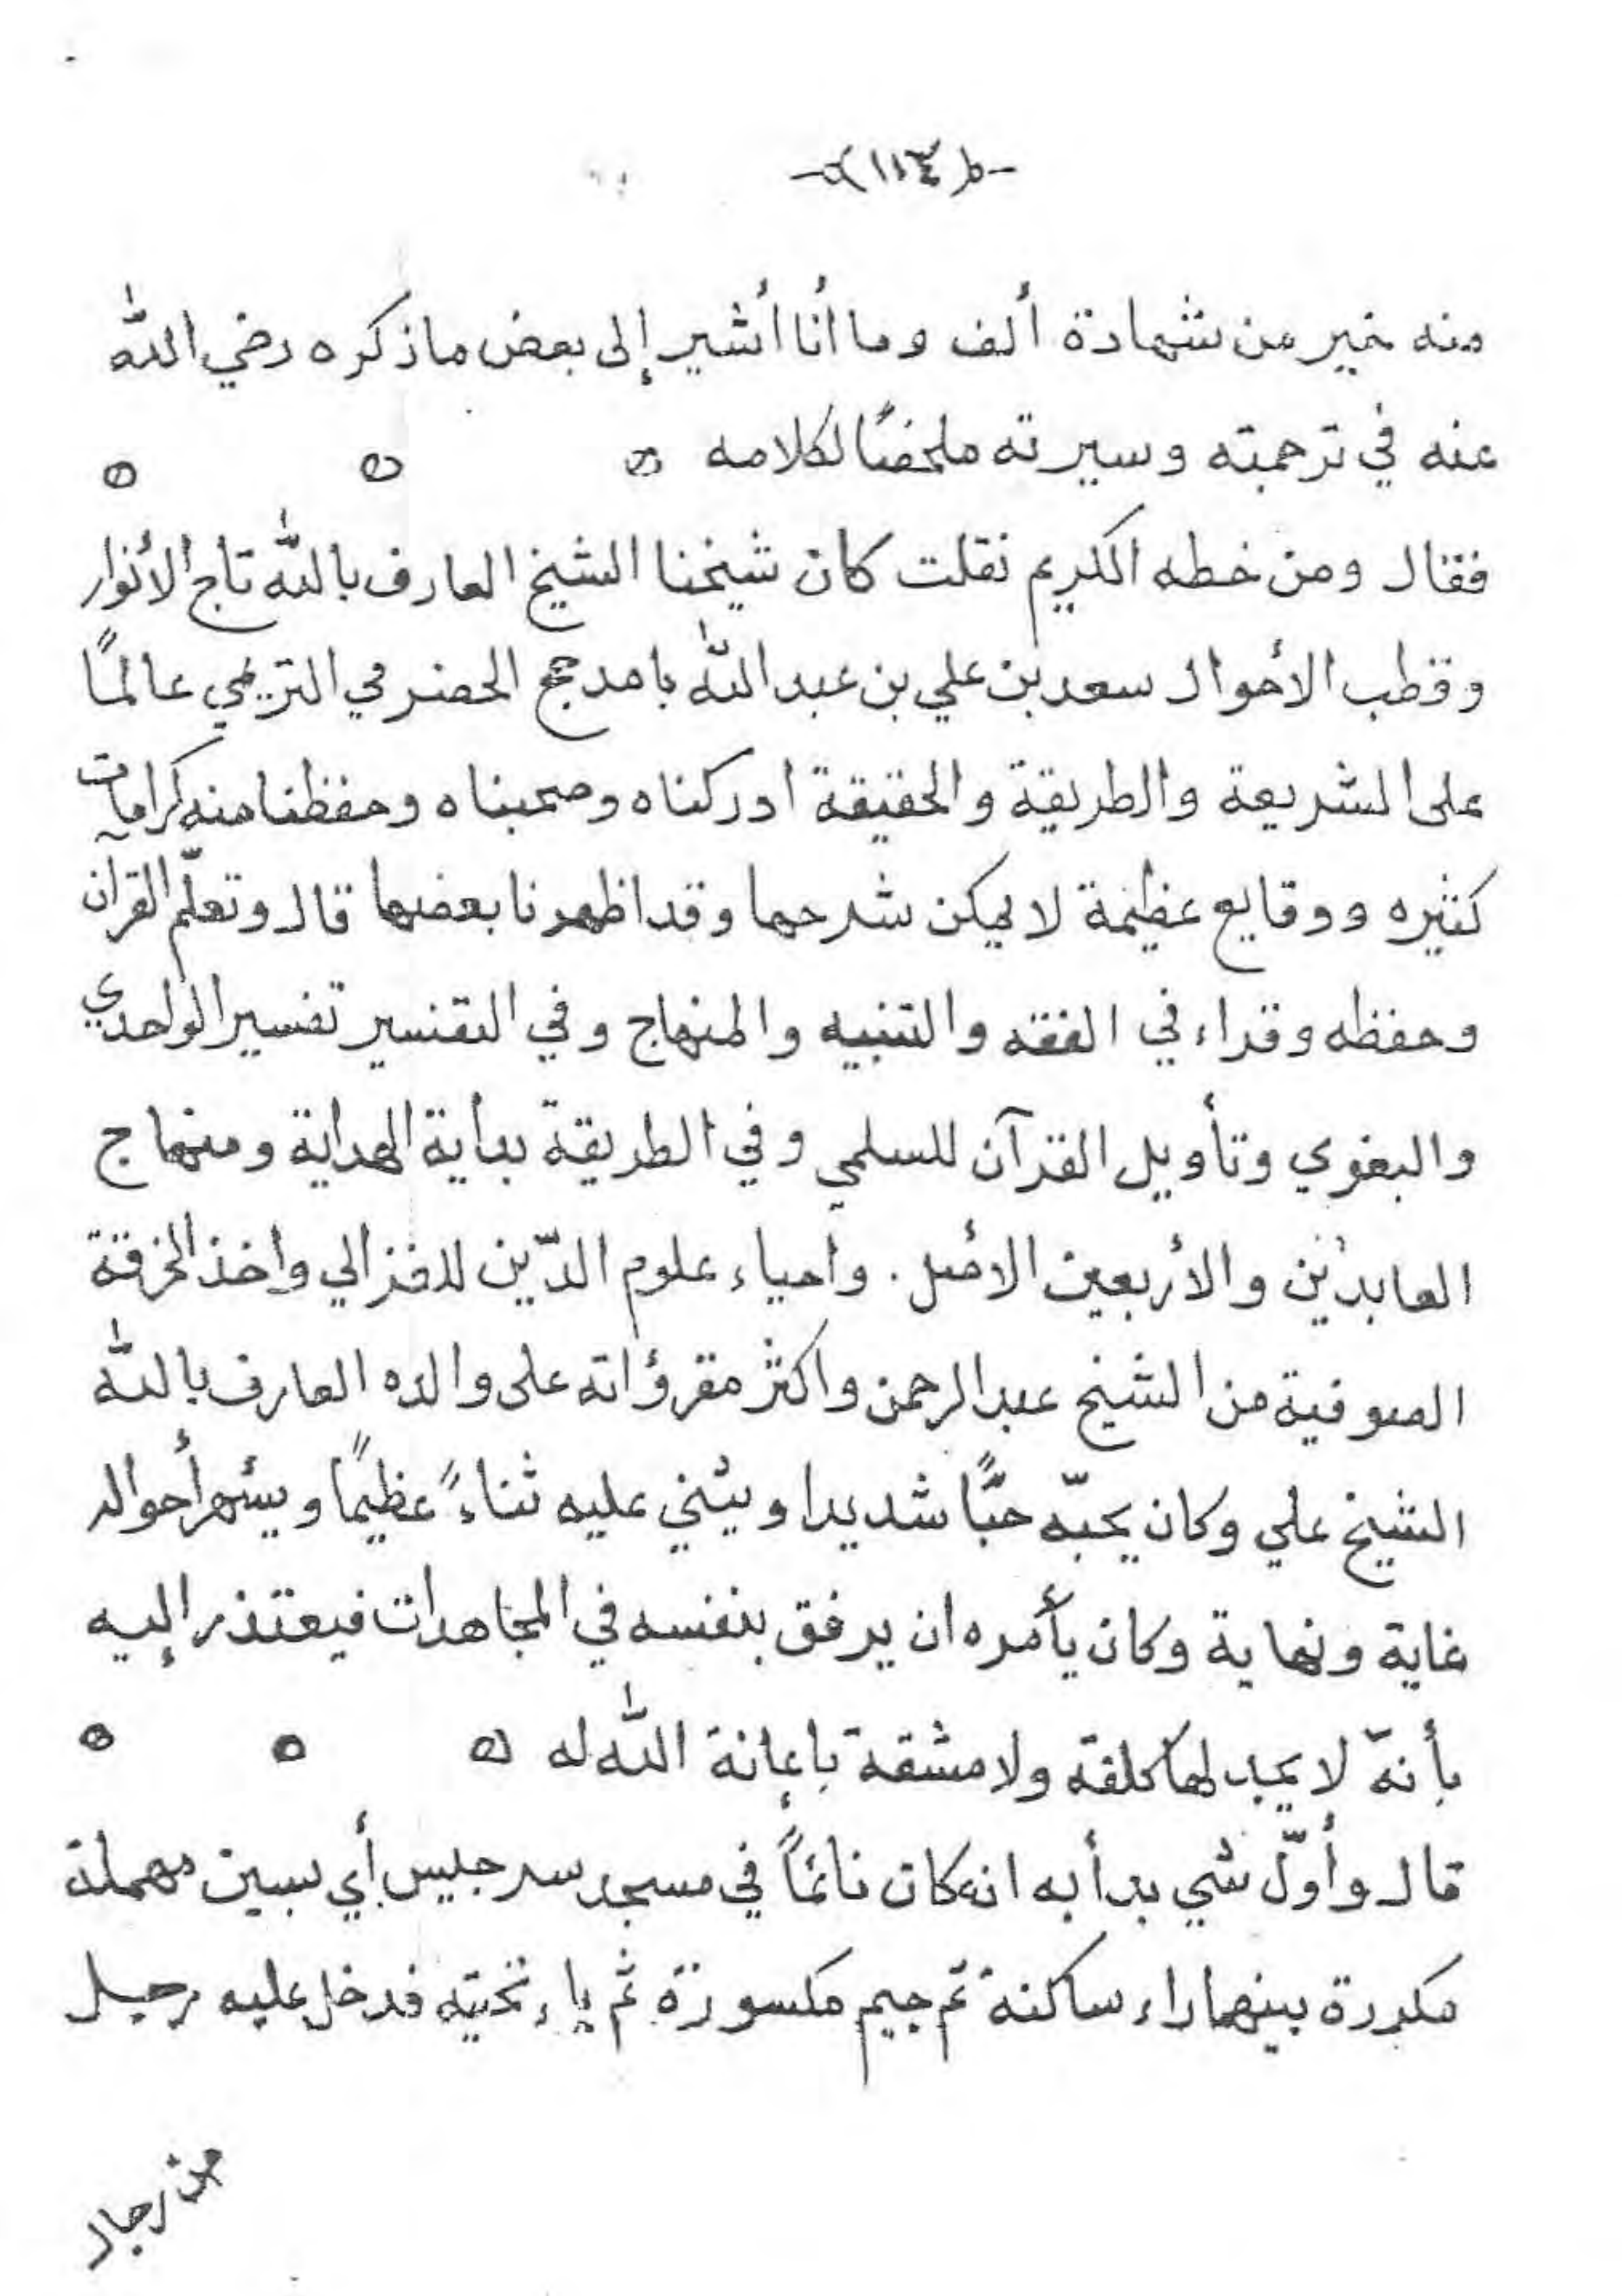 -(١١٤)-
منه خير من شهادة ألف وما أنا أُشير إلى بعض ما ذكره رضي الله
عنه في ترجمته وسيرته ملخصًا لكلامه
فقال ومن خطه الكريم نقلت كان شيخنا الشيخ العارف بالله تاج الأنوار
وقطب الأحوال سعد بن علي بن عبد الله بامدحج الحضرمي التريمي عالمًا
على الشريعة والطريقة والحقيقة ادركناه وصحبناه وحفظنا منه كرامات
كثيره ووقايع عظيمة لا يمكن شرحها وقد اظهرنا بعضها قال وتعلّم القرآن
وحفظه وقراء في الفقه والتنبيه والمنهاج وفي التفسير تفسير الواحدي
والبغوي وتأويل القرآن للسلمي وفي الطريقة بداية الهداية ومنهاج
العابدين والأربعين الأصل. واحياء علوم الدّين للغزالي واخذ الخرقة
الصوفية من الشيخ عبد الرحمن واكثر مقرؤاته على والده العارف بالله
الشيخ علي وكان يحبّه حبًّا شديدا ويثني عليه ثناءً عظيمًا ويشهر أحواله
غاية ونهاية وكان يأمره ان يرفق بنفسه في المجاهدات فيعتذر إليه
بأنهّ لا يجد لها كلفة ولا مشقة بإعانة الله له
قال وأوّل شي بدأ به انه كان نائمًا في مسجد سرجيس أي بسين مهملة
مكررة بينهما راء ساكنة ثم جيم مكسورة ثم ياء تحتيه فدخل عليه رجل
من رجال